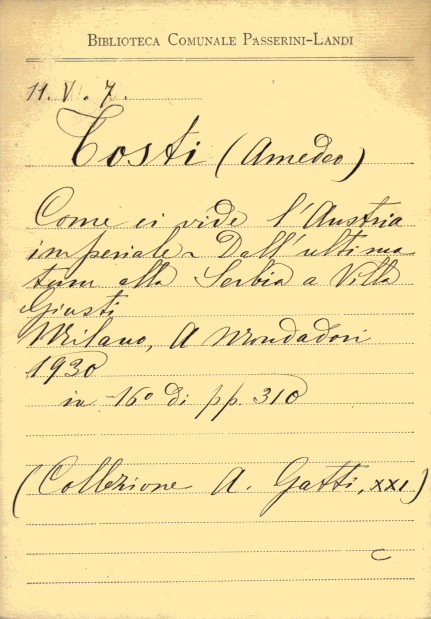 BIBLIOTECA COMUNALE PASSERINI-LANDI
11. V. 7.
Tosti (Amedeo)
Come ci vide l'Austria
imperiale - Dall'ultima-
tum alla Serbia a Villa
Giusti
Milano, A Mondadori
1930
in -16º di pp. 310
(Collezione A. Gatti, XXI)
C